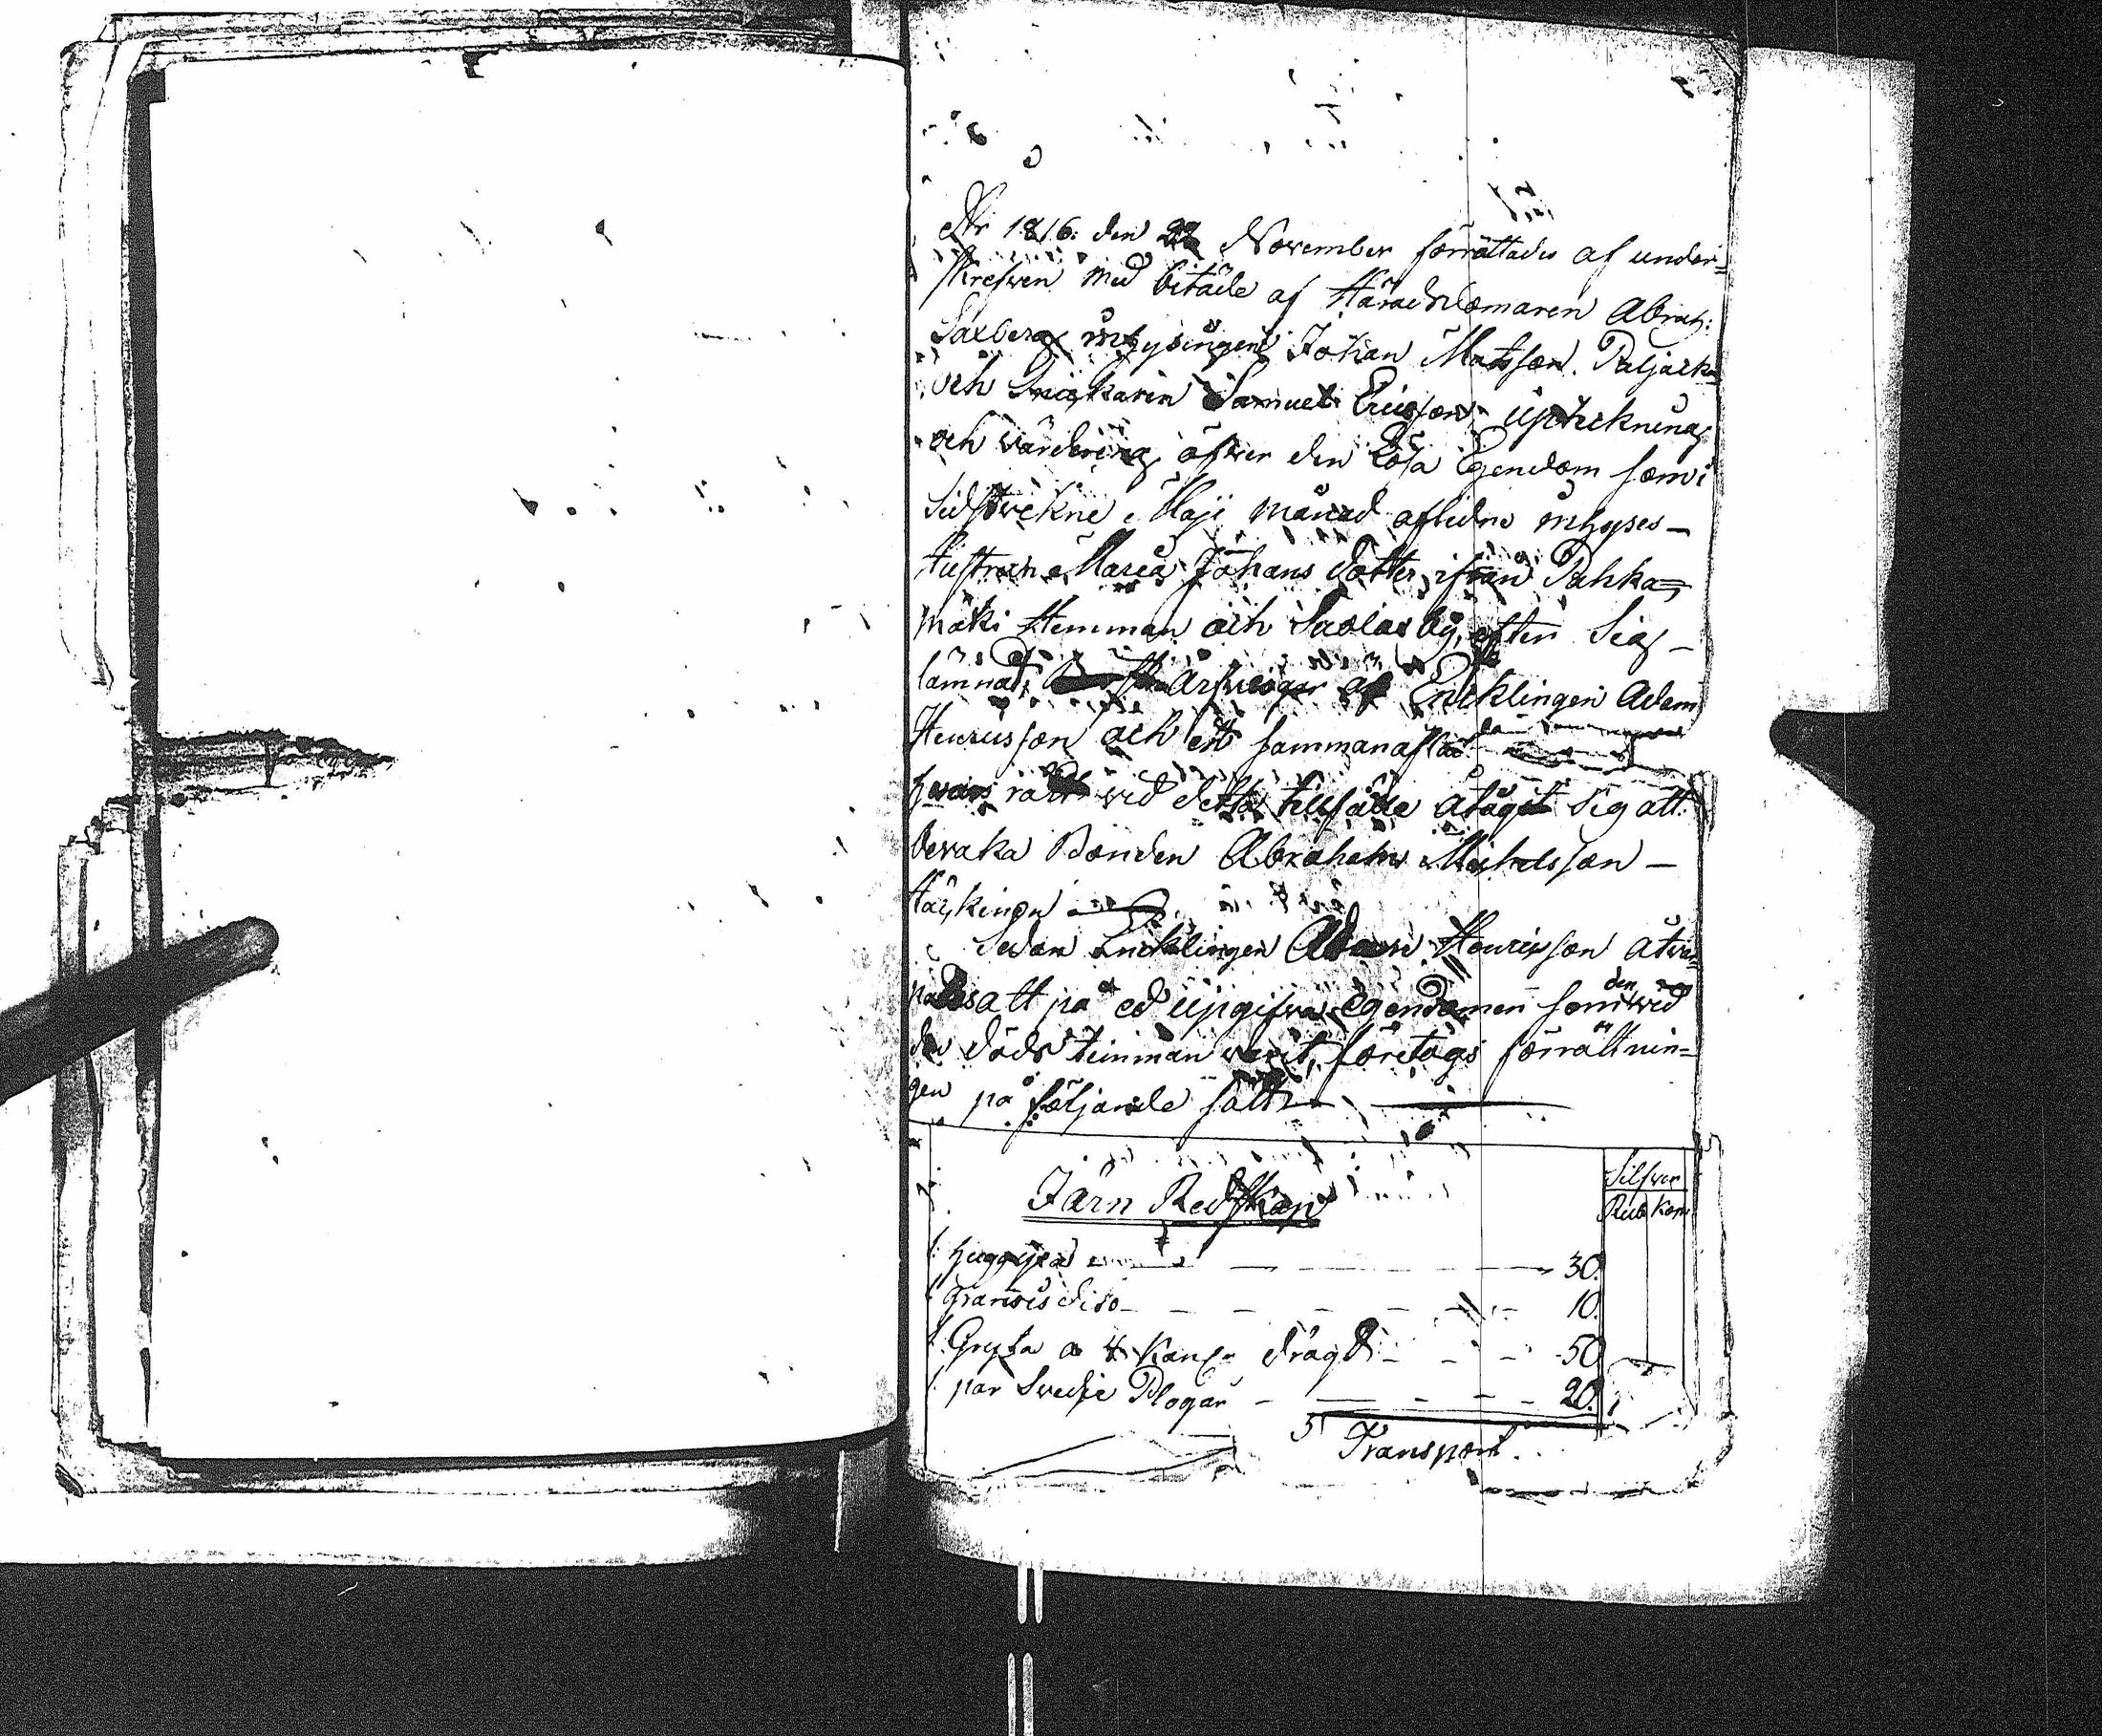 År 1816: den 22 November förrättades af under=
skrefven med biträde af Häradsdomaren Abrah:
Saxberg inhysingen Johan Matsson Paljack
och Snickaren Samuel Ericsson upteckning
och värdering öfver den Lösa Egendom som i
Sidstvekne Maji månad aflidne inhyses-
Hustrun Maria Johans dotter ifrån Pahka=
mäki Hemman och by, efter Sig
lämnat, Arfvingar Encklingen Adam
Henricsson och ett sammanaflat
hvars rätt vid detta tillfälle åtagit sig att
bevaka Bonden Abraham Michelsson -
Häykinen
Sedan Encklingen Adam Henricsson åtvar=
nades att på ed upgifva Egendomen som den vid
döds timman varit, företogs förrättnin=
gen på följande sätt
Silfver
Järn Redskap
Rub Kop
1 huggyxa 30.
1 dito 10.
1 Gryta a 4 Kan drägt 50
1 par Svedje Plogar 20.
Transport.